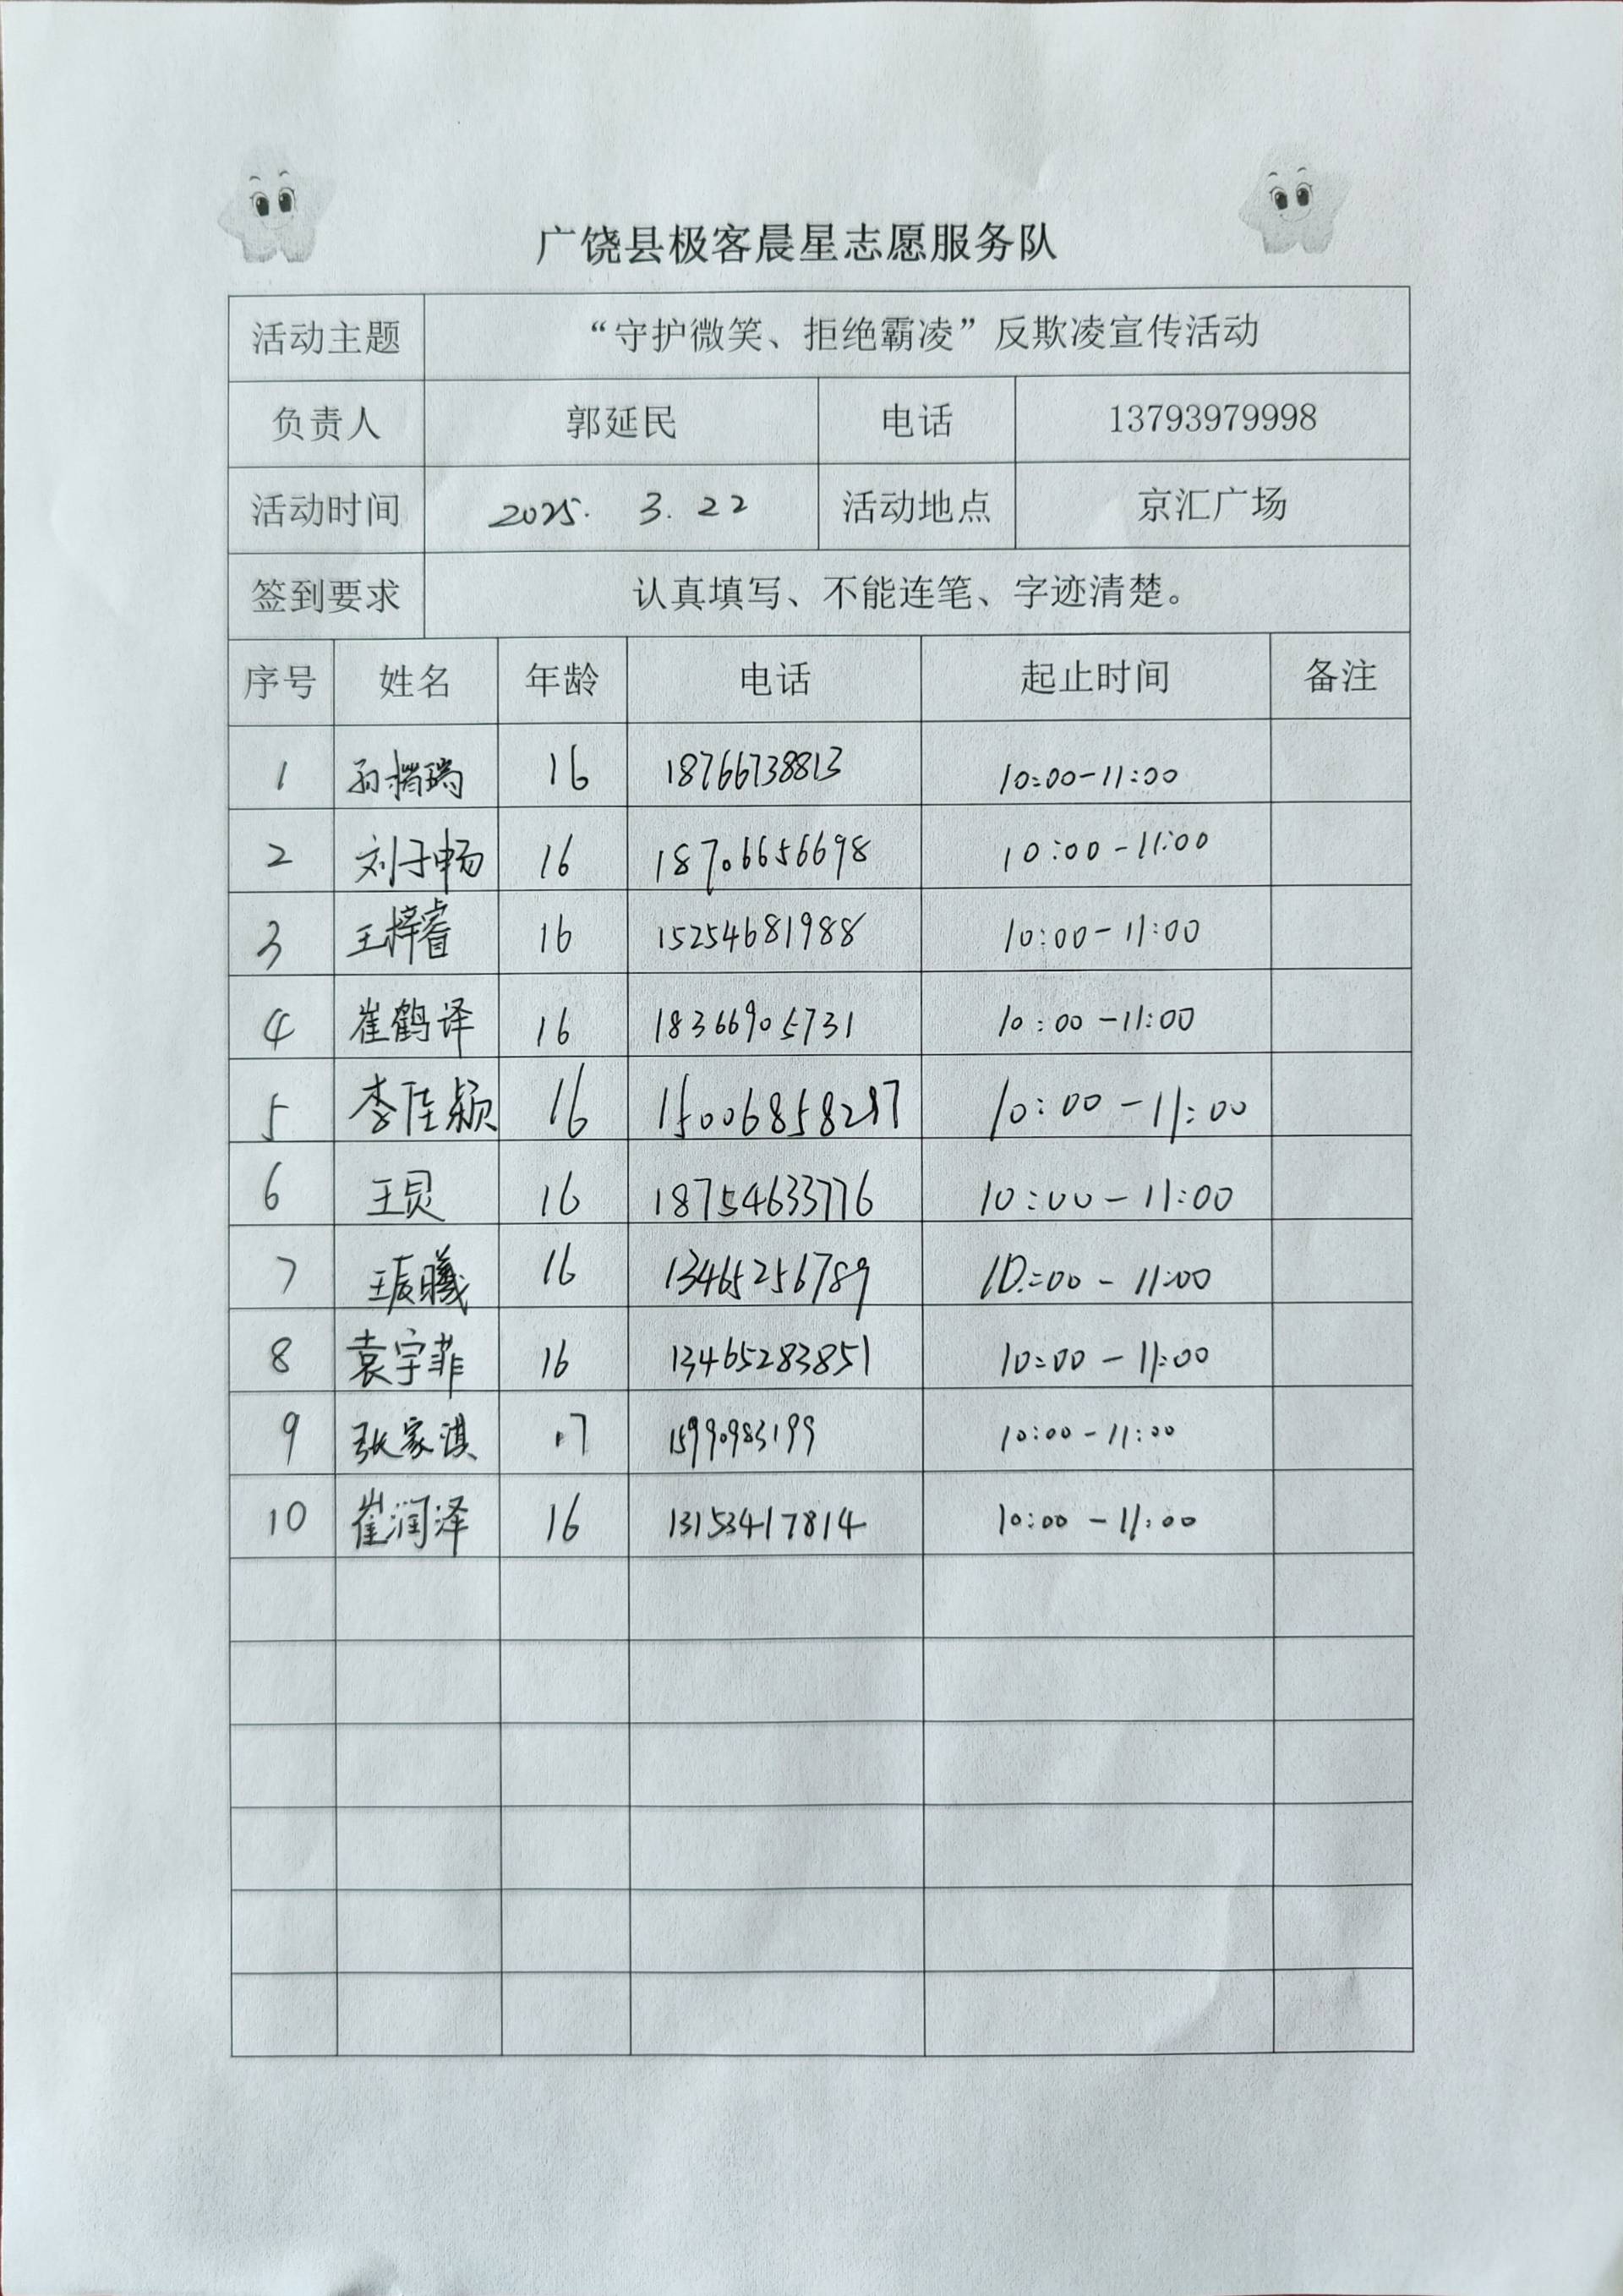 广饶县极客晨星志愿服务队
活动主题 “守护微笑、拒绝霸凌”反欺凌宣传活动
负责人 郭延民 电话 13793979998
活动时间 2025. 3. 22 活动地点 京汇广场
签到要求 认真填写、不能连笔、字迹清楚。
序号 姓名 年龄 电话 起止时间 备注
1 孙 瑞 16 18766738813 10:00-11:00
2 刘于畅 16 18706656698 10:00-11:00
3 王梓睿 16 15254681988 10:00-11:00
4 崔鹤译 16 18366905731 10:00-11:00
5 李佳颍 16 10:00-11:00
6 王 16 18754633776 10:00-11:00
7 王 曦 16 13465256789 10:00-11:00
8 袁宇菲 16 13465283851 10:00-11:00
9 张家淇 17 15990983199 10:00-11:00
10 崔润泽 16 13153417814 10:00-11:00